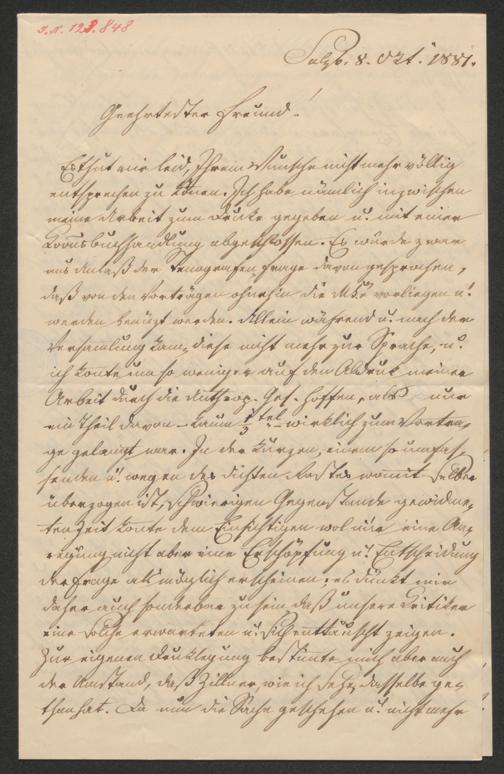 I.N. 123.848
Salzb. 8. Okt. 1881.
Geehrtester Freund!
Es thut mir leid, Ihrem Wunsche nicht mehr völlig
entsprechen zu können. Ich habe nämlich inzwischen
meine Arbeit zum Drucke gegeben u. mit einer
buchhandlung abgeschlossen. Es wurde zwar
aus Anlaß der Stenografen frage davon gesprochen,
daß von den Vorträgen ohnehin die Mkr vorliegen u.
werden benüzt werden. Allein während u. nach der
Versamlung kam diese nicht mehr zur Sprache, u.
ich konte um so weniger auf den Abdruk meiner
Arbeit durch die Anthrop. Ges. hoffen, als nur
ein Theil davon – kaum ⅓tel – wirklich zum Vortra-
ge gelangt war. In der kurzen, einem so umfas-
senden u. wegen des dichten Rostes womit selber
überzogen ist, schwierigen Gegenstande gewidme-
ten Zeit konte dem Einsichtigen wol nur eine An-
regung nicht aber eine Erschöpfung u. Entscheidung
der Frage als möglich erscheinen; es dünkt mir
daher auch sonderbar zu sein daß unsere Kritiker
eine solche erwarteten u. sich enttäuscht zeigen.
Zur eigenen Druklegung bestimte mich aber auch
der Umstand, daß Zillner wie ich sehe, dasselbe ge-
than hat. Da nun die Sache geschehen u. nicht mehr